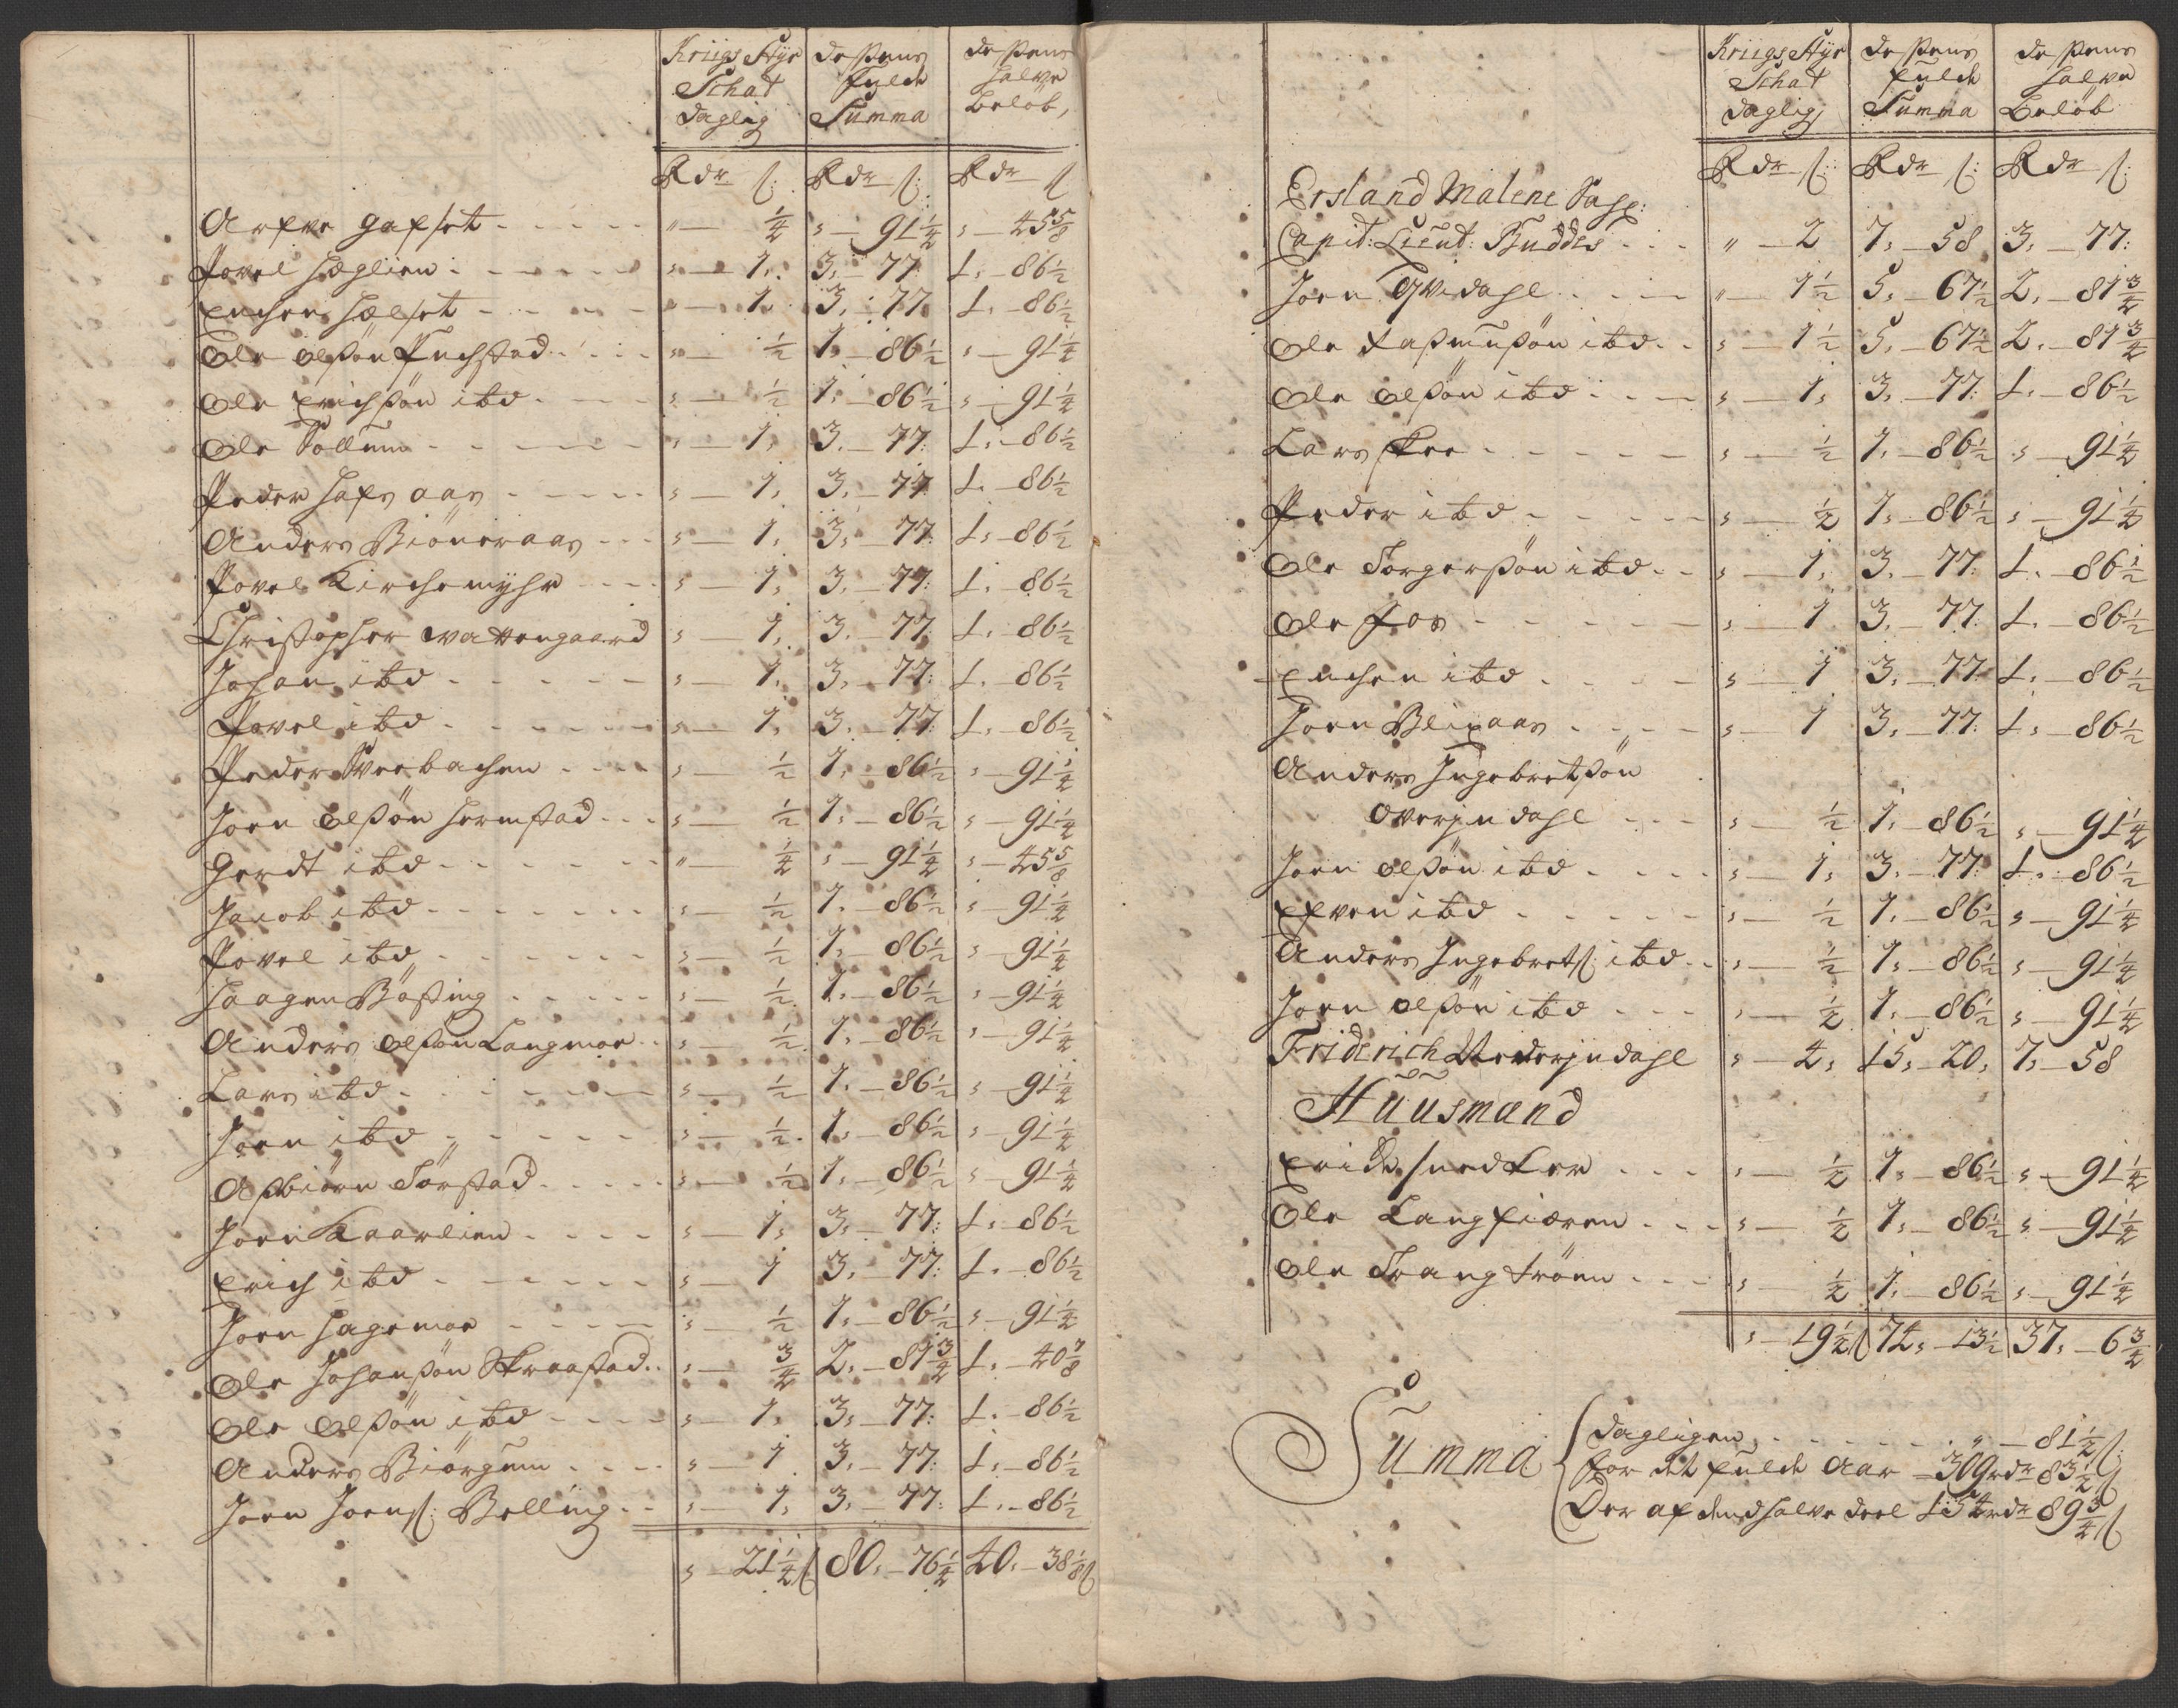 Kriigs Styr deßens deßens
Schat fulde halve
daglig Summa Beløb,
Rdr ß: Rdr ß: Rdr ß
Arfve Hafset - - - - - " — 1/4 : — 91 1/4 : — 45 5/8
Povel Høglien - - - - - : — 1, 3, — 77 1, — 86 1/2
Enchen Hælset - - - - - : — 1, 3, — 77 1, — 86 1/2
Ole Olßøn Puchstad - - - : — 1/2 1, — 86 1/2 : — 91 1/4
Ole Erichßøn ibd - - - - : — 1/2 1, — 86 1/2 : — 91 1/4
Ole Sollum - - - - - : — 1, 3, — 77: 1, — 86 1/2
Peder Hafs aas - - - - - : — 1, 3, — 77: 1, — 86 1/2
Anders Biøneraas - - - : — 1, 3, — 77: 1, — 86 1/2
Povel Kirchemyhr - - - - : — 1, 3, — 77: 1, — 86 1/2
Christopher Wattengaard : — 1, 3, — 77: 1, — 86 1/2
Johan ibd - - - - - : — 1, 3, — 77: 1, — 86 1/2
Povel ibd - - - - - - : — 1, 3, — 77: 1, — 86 1/2
Peder Sveebachen - - - - : — 1/2 1, — 86 1/2 : — 91 1/4
Joen Olßøn Hermstad - - - : — 1/2 1, — 86 1/2 : — 91 1/4
Gerdt ibd - - - - - - " — 1/4 : — 91 1/4 : — 45 5/8
Jacob ibd - - - - - - : — 1/2 1, — 86 1/2 : — 91 1/4
Povel ibd - - - - - - : — 1/2 1, — 86 1/2 : — 91 1/4
Haagen Bøßing - - - - - : — 1/2 1, — 86 1/2 : — 91 1/4
Anders Olßøn Langmoe - - : — 1/2 1, — 86 1/2 : — 91 1/4
Lars ibd - - - - - - : — 1/2 1, — 86 1/2 : — 91 1/4
Joen ibd - - - - - : — 1/2 1, — 86 1/2 : — 91 1/4
Aßbiørn Torstad - - - - - : — 1/2 1, — 86 1/2 : — 91 1/4
Joen Kaarlien - - - - : — 1, 3, — 77: 1, — 86 1/2
Erich ibd - - - - - - : — 1 3, — 77: 1, — 86 1/2
Joen Hagemoe - - - - - : — 1/2 1, — 86 1/2 : — 91 1/4
Ole Johanßøn Skraastad - - : — 3/4 2, — 81 3/4 1, — 40 7/8
Ole Olßøn ibd - - - - : — 1, 3, — 77: 1, — 86 1/2
Anders Biørgum - - - - : — 1 3, — 77: 1, — 86 1/2
Joen Joens: Belling - - : — 1, 3, — 77: 1, — 86 1/2
: — 21 1/4 ß 80, — 76 1/4 40, — 38 1/8 ß
Kriigs Styr deßens deßens
Schat fulde halve
daglig Summa Beløb
Rdr ß: Rdr ß: Rdr ß:
Ersland Malene Sahl:
Capit: Lieut: Buddes - - - " — 2 7, — 58 3, — 77:
Joen Qvidahl - - - " — 1 1/2 5, — 67 1/2 2, — 81 3/4
Ole Raßmußøn ibd - - : — 1 1/2 5, — 67 1/2 2, — 81 3/4
Ole Olßøn ibd - - - - : — 1, 3, — 77: 1, — 86 1/2
Lars Skee - - - - - : — 1/2 1, — 86 1/2 : — 91 1/4
Peder ibd - - - - - : — 1/2 1, — 86 1/2 : — 91 1/4
Ole Torgerßøn ibd - - : — 1, 3, — 77: 1, — 86 1/2
Ole Fos - - - - - : — 1 3, — 77: 1, — 86 1/2
Enchen ibd - - - - : — 1 3, — 77: 1, — 86 1/2
Joen Blixaas - - - - : — 1 3, — 77: 1, — 86 1/2
Anders Ingebretßøn
Overjndahl - - - : — 1/2 1, — 86 1/2 : — 91 1/4
Joen Olßøn ibd - - - - : — 1, 3, — 77: 1, — 86 1/2
Efven ibd - - - - - : — 1/2 1, — 86 1/2 : — 91 1/4
Anders Ingebrets: ibd - - : — 1/2 1, — 86 1/2 : — 91 1/4
Joen Olßøn ibd - - - : — 1/2 1, — 86 1/2 : — 91 1/4
Friderich Nederjndahl : — 4, 15, — 20, 7, — 58
Huusmænd
Erich Snedker - - - : — 1/2 1, — 86 1/2 : — 91 1/4
Ole Langfiæren - - - : — 1/2 1, — 86 1/2 : — 91 1/4
Ole Trangtrøen - - - : — 1/2 1, — 86 1/2 : — 91 1/4
: — 19 1/2 ß 74, — 13 1/2 37, — 6 3/4
Summa
dagligen - - - - - - " — 81 1/2 ß:
for det fulde Aar — 309 rdr 83 1/2 ß
Der af dend halve deel 154 rdr 89 3/4 ß